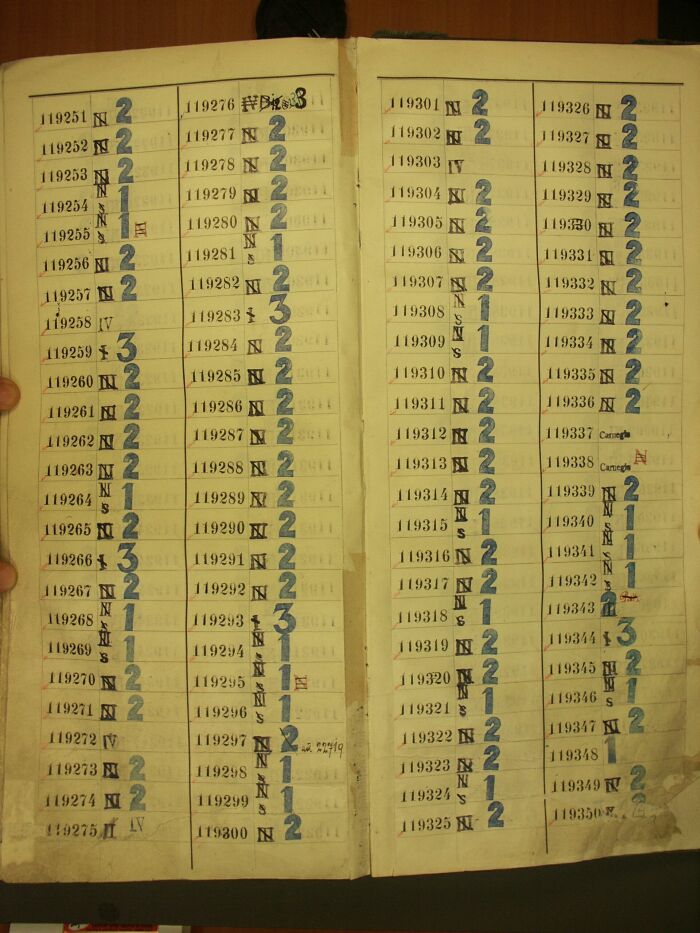 119251 N 2
119252 N 2
119253 N 2
119254 N s 1
119255 N s 1 III
119256 N 2
119257 N 2
119258 IV
119259 3
119260 N 2
119261 N 2
119262 N 2
119263 N 2
119264 N s 1
119265 N 2
119266 3
119267 N 2
119268 N s 1
119269 N s 1
119270 N 2
119271 N 2
119272 IV
119273 N 2
119274 N 2
119275 II IV
119276 3
119277 N 2
119278 N 2
119279 N 2
119280 N 2
119281 N s 1
119282 N 2
119283 3
119284 N 2
119285 N 2
119286 N 2
119287 N 2
119288 N 2
119289 N 2
119290 N 2
119291 N 2
119292 N 2
119293 3
119294 N s 1
119295 N s 1 III
119296 N s 1
119297 N 2 22719
119298 N s 1
119299 N s 1
119300 N 2
119301 N 2
119302 N 2
119303 IV
119304 N 2
119305 N 2
119306 N 2
119307 N 2
119308 N s 1
119309 N s 1
119310 N 2
119311 N 2
119312 N 2
119313 N 2
119314 N 2
119315 N s 1
119316 N 2
119317 N 2
119318 N s 1
119319 N 2
119320 N 2
119321 N s 1
119322 N 2
119323 N 2
119324 N s 1
119325 N 2
119326 N 2
119327 N 2
119328 N 2
119329 N 2
119330 N 2
119331 N 2
119332 N 2
119333 N 2
119334 N 2
119335 N 2
119336 N 2
119337 Carnegie
119338 Carnegie
119339 N 2
119340 N s 1
119341 N s 1
119342 N s 1
119343 2
119344 3
119345 N 2
119346 N s 1
119347 N 2
119348 1
119349 N 2
119350 2